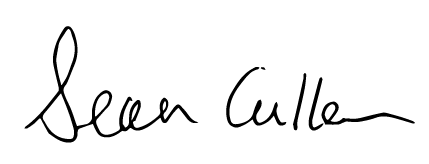 Sean Cullen